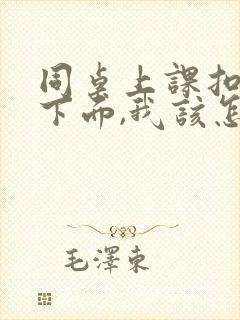 同桌上課扣
下面,我該怎
毛澤東